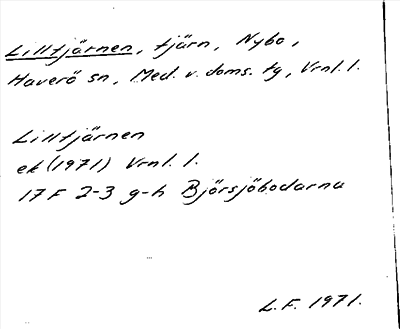 Lilltjärnen, tjärn, Nybo,
Haverö sn, Med. v. doms. tg, Vrnl. l.
Lilltjärnen
ek (1971) Vrnl. l.
17 F 2-3 g-h Björsjöbodarna
L.F. 1971.